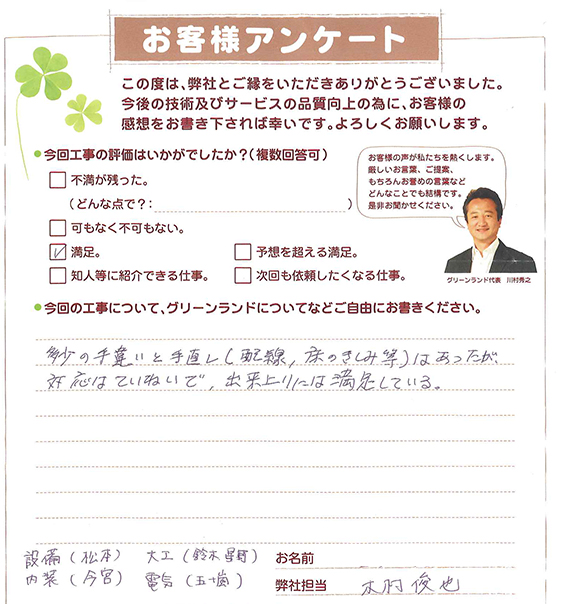 お客様アンケート
この度は、弊社とご縁をいただきありがとうございました。
今後の技術及びサービスの品質向上の為に、お客様の
感想をお書き下されば幸いです。よろしくお願いします。
今回工事の評価はいかがでしたか?(複数回答可)
不満が残った。
(どんな点で?: )
可もなく不可もない。
満足。
予想を超える満足。
知人等に紹介できる仕事。
次回も依頼したくなる仕事。
お客様の声が私たちを熱くします。
厳しいお言葉、ご提案、
もちろんお誉めの言葉など
どんなことでも結構です。
是非お聞かせください。
グリーンランド代表 川村秀之
今回の工事について、グリーンランドについてなどご自由にお書きください。
多少の手違いと手直し(配線, 床のきしみ等)はあったが、
対応はていねいで, 出来上りには満足している。
設備(松本) 大工(鈴木 星野)
内装(今宮) 電気(五十嵐)
お名前
弊社担当 木村俊也